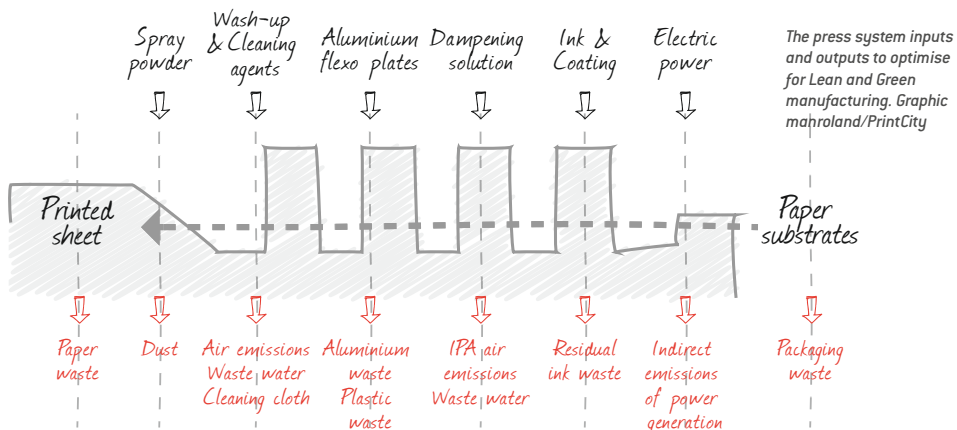 Spray
powder
Wash-up
& Cleaning
agents
Aluminium
flexo plates
Dampening
solution
Ink &
Coating
Electric
power
The press system inputs
and outputs to optimise
for Lean and Green
manufacturing. Graphic
manroland/PrintCity
Printed
sheet
Paper
substrates
Paper
waste
Dust
Air emissions
Waste water
Cleaning cloth
Aluminium
waste
Plastic
waste
IPA air
emissions
Waste water
Residual
ink waste
Indirect
emissions
of power
generation
Packaging
waste